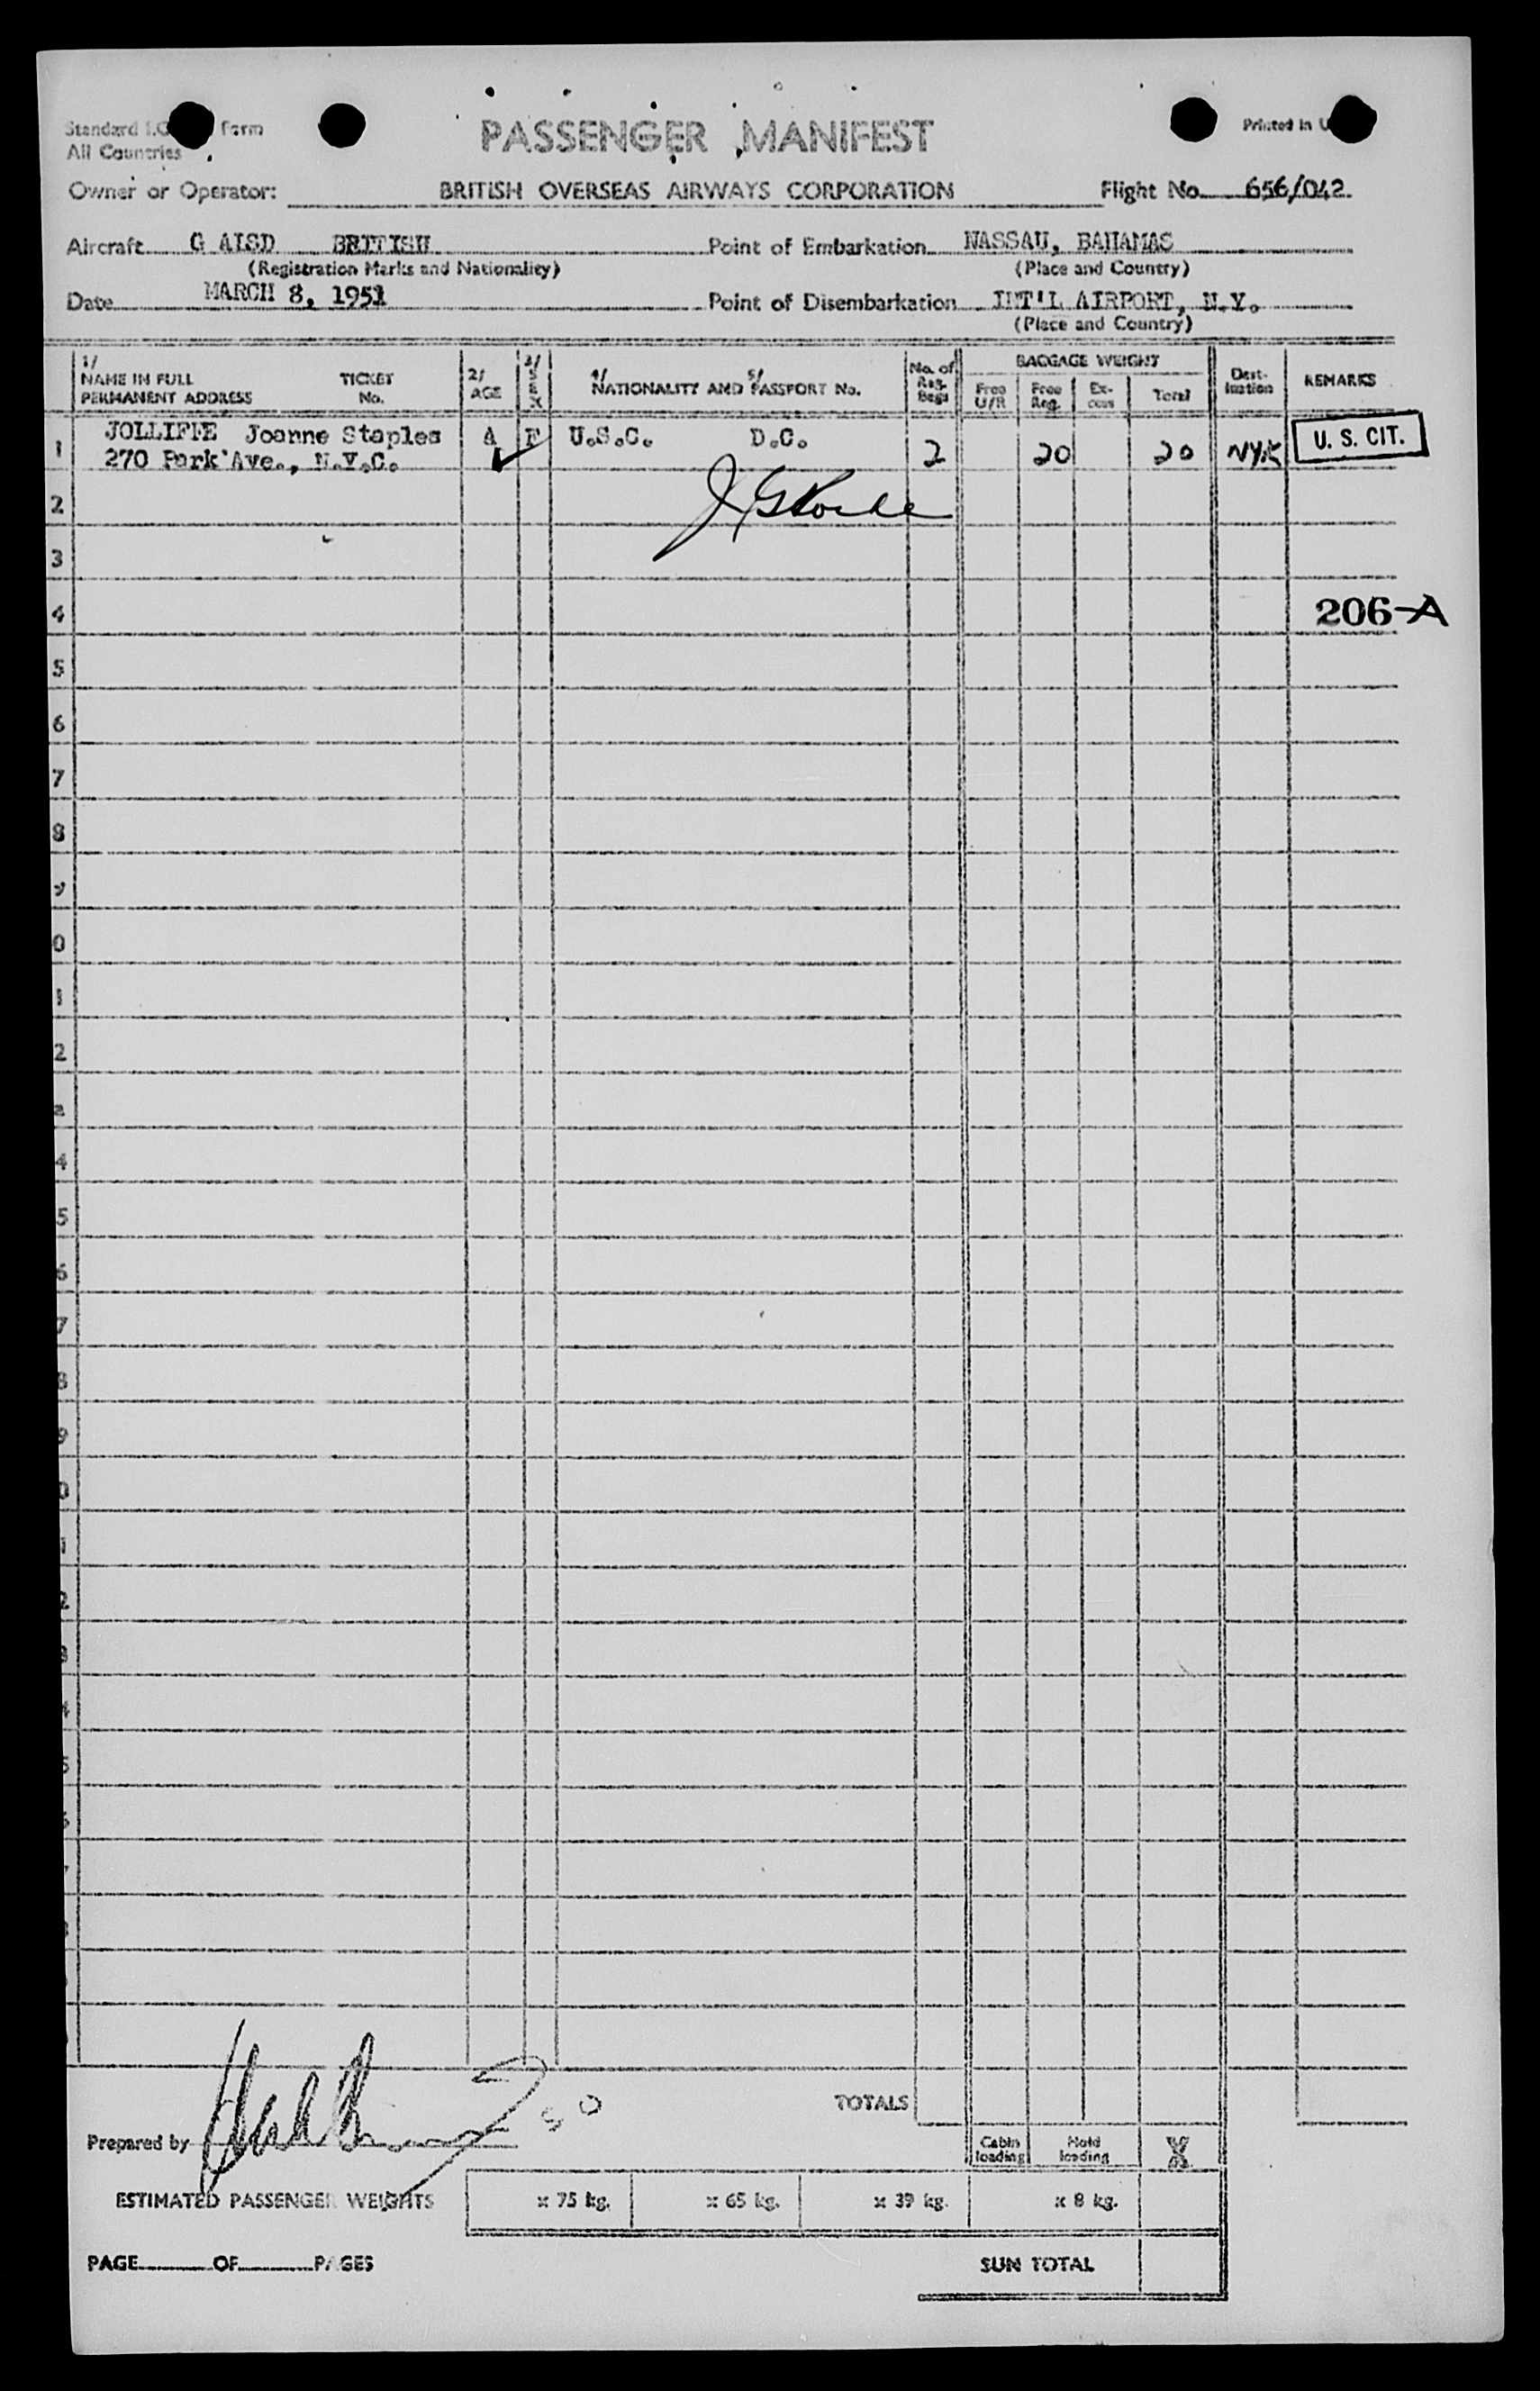 Standard I.C Form
All Countries
PASSENGER MANIFEST
Printed in U
Owner or Operator: BRITISH OVERSEAS AIRWAYS CORPORATION Flight No. 656/042
Aircraft G AISD BRITISH Point of Embarkation NASSAU, BAHAMAS
(Registration Marks and Nationality) (Place and Country)
Date MARCH 8, 1951 Point of Disembarkation INT'L AIRPORT, N.Y.
(Place and Country)
1/ 2/ 3/ 4/ 5/ No. of BAGGAGE WEIGHT
NAME IN FULL TICKET AGE SEX NATIONALITY AND PASSPORT No. Reg. Bags Free U/R Free Reg. Ex-cess Total Dest-ination REMARKS
PERMANENT ADDRESS No.
1 JOLLIFFE Joanne Staples A F U.S.C. D.C. 2 20 20 NYK U. S. CIT.
270 Park Ave., N.Y.C.
2
3
4 206-A
5
6
7
8
9
0
1
2
3
4
5
6
7
8
9
0
1
2
3
4
5
6
TOTALS
50
Prepared by
Cabin loading Hold loading
ESTIMATED PASSENGER WEIGHTS x 75 kg. x 65 kg. x 39 kg. x 8 kg.
PAGE OF PAGES SUN TOTAL